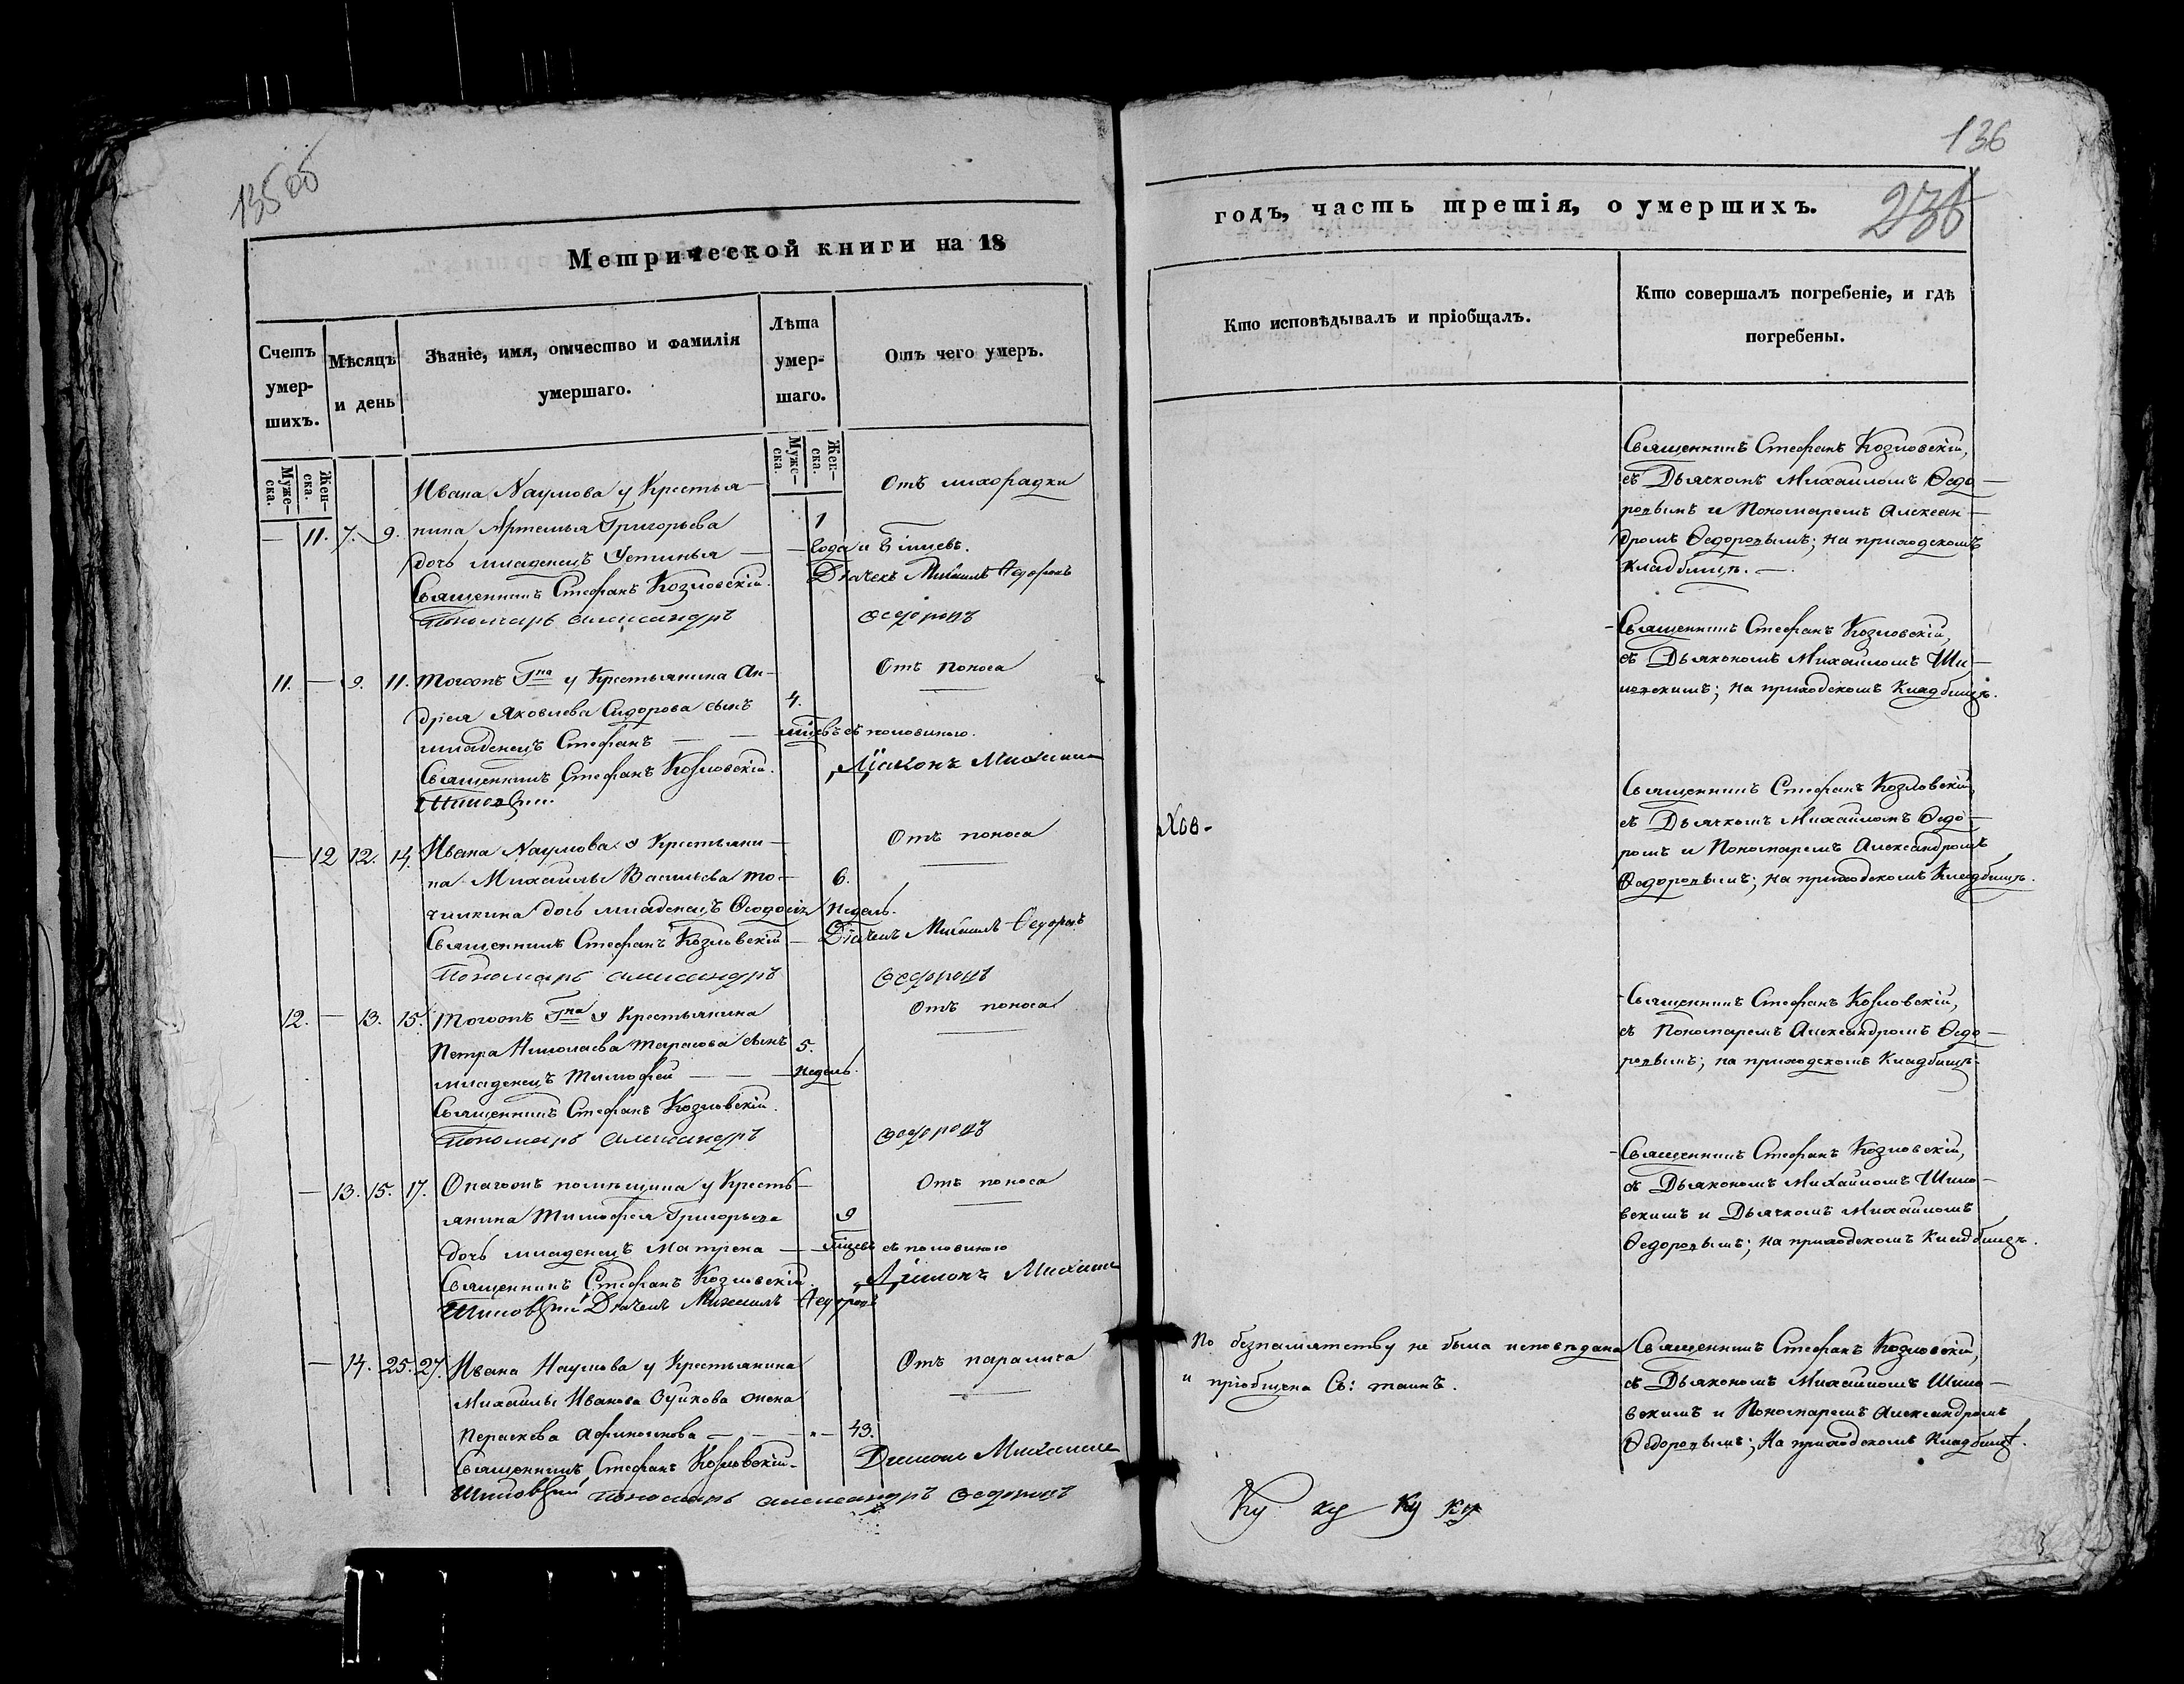 135об
Метрической книги на 18
Счетъ умер-шихъ.
Мѣсяцъ и день
Званіе, имя, отчество и фамилія умершаго.
Лѣта умер-шаго.
Отъ чего умеръ.
Муже-ска.
Жен-ска.
Муже-ска.
Жен-ска.
Ивана Наумова у Крестья-
Отъ лихорадки
— 11. 7. 9. нина Артемья Григорьева 1
дочь младенецъ Устинья — года и мцевъ.
Священникъ Стефанъ Козловскій. Дьячекъ Михаилъ Ѳедоровъ
Пономарь Александръ Ѳедоровъ
11. — 9. 11. Тогожъ Гна у Крестьянина Ан-
Отъ поноса
дрея Яковлева Сидорова сынъ 4.
младенецъ Стефанъ — — мцевъ съ половиною.
Священникъ Стефанъ Козловскій. Діаконъ Михаилъ
Шиповскій
— 12 12. 14. Ивана Наумова у Крестьяни-
Отъ поноса
на Михайлы Васильева То- 6.
чилкина дочь младенецъ Ѳеодосія недель.
Священникъ Стефанъ Козловскій — Дьячекъ Михаилъ Ѳедоровъ
Пономарь Александръ Ѳедоровъ
12. — 13. 15. Тогожъ Гна у Крестьянина
Отъ поноса
Петра Николаева Тарасова сынъ 5.
младенецъ Тимофей — — недель.
Священникъ Стефанъ Козловскій.
Пономарь Александръ Ѳедоровъ
— 13. 15. 17. Онагожъ помѣщика у Кресть-
Отъ поноса
янина Тимофея Григорьева 9
дочь младенецъ Матрена — мцевъ съ половиною
Священникъ Стефанъ Козловскій. Діаконъ Михаилъ
Шиповскій Дьячекъ Михаилъ Ѳедоровъ
— 14. 25. 27. Ивана Наумова у Крестьянина
Отъ паралича
Михайлы Иванова жена
Пераскева — — 43.
Священникъ Стефанъ Козловскій. Діаконъ Михаилъ
Шиповскій Пономарь Александръ Ѳедоровъ
136
236
годъ, часть третія, о умершихъ.
Кто исповѣдывалъ и пріобщалъ.
Кто совершалъ погребеніе, и гдѣ погребены.
Священникъ Стефанъ Козловскій,
съ Дьячкомъ Михаиломъ Ѳедо-
ровымъ и Пономаремъ Алексан-
дромъ Ѳедоровымъ; на приходскомъ
Кладбищѣ. —
Священникъ Стефанъ Козловскій,
съ Дьякономъ Михаиломъ Ши-
повскимъ; на приходскомъ Кладбищѣ.
Священникъ Стефанъ Козловскій,
съ Дьячкомъ Михаиломъ Ѳедо-
ромъ и Пономаремъ Александромъ
Ѳедоровымъ; на приходскомъ Кладбищѣ.
Священникъ Стефанъ Козловскій,
съ Пономаремъ Александромъ Ѳедо-
ровымъ; на приходскомъ Кладбищѣ.
Священникъ Стефанъ Козловскій,
съ Дьякономъ Михаиломъ Шипо-
вскимъ и Дьячкомъ Михаиломъ
Ѳедоровымъ; на приходскомъ Кладбищѣ.
По безпамятству не была исповѣдана
и пріобщена Св: таинъ.
Священникъ Стефанъ Козловскій,
съ Дьякономъ Михаиломъ Шипо-
вскимъ и Пономаремъ Александромъ
Ѳедоровымъ; на приходскомъ Кладбищѣ.
Ку ку Ку ку